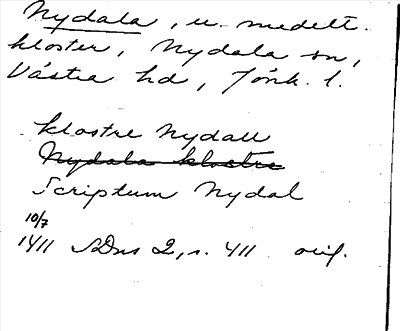 Nydala, u. medelt.
kloster, Nydala sn,
Västra hd, Jönk. l.
klostre Nydall
Nydala klostre
Scriptum Nydal
10/7
1411 SDns 2, s. 411 orig.